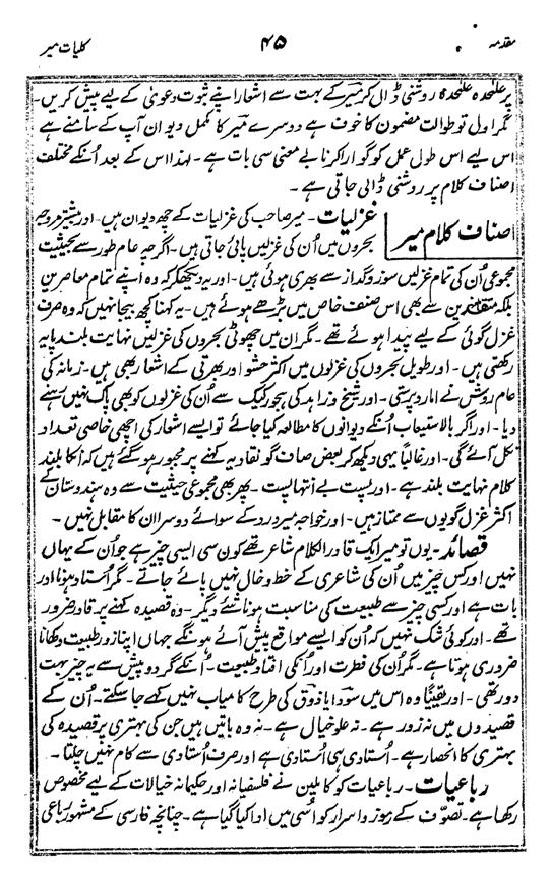 مقدمہ ۴۵ کلیات میر
پر علیحدہ علیحدہ روشنی ڈال کر میر کے بہت سے اشعار اپنے ثبوت دعویٰ کے لیے پیش کریں۔
مگر اول تو طوالت مضمون کا خوف ہے دوسرے میر کا مکمل دیوان آپ کے سامنے ہے
اس لیے اس طول عمل کو گوارا کرنا بے معنی سی بات ہے۔ لہذا اس کے بعد اُنکے مختلف
اصناف کلام پر روشنی ڈالی جاتی ہے۔
اصناف کلام میر
غزلیات۔ میر صاحب کی غزلیات کے چھ دیوان ہیں۔ اور بیشتر مروجہ
بحروں میں اُن کی غزلیں پائی جاتی ہیں۔ اگرچہ عام طور سے بحیثیت
مجموعی اُن کی تمام غزلیں سوز و گداز سے بھری ہوئی ہیں۔ اور یہ دیکھکر کہ وہ اپنے تمام معاصرین
بلکہ متقدمین سے بھی اس صنف خاص میں بڑھے ہوئے ہیں۔ یہ کہنا کچھ بیجا نہیں کہ وہ صرف
غزل گوئی کے لیے پیدا ہوئے تھے۔ مگر ان میں چھوٹی بحروں کی غزلیں نہایت بلند پایہ
رکھتی ہیں۔ اور طویل بحروں کی غزلوں میں اکثر حشو اور بھرتی کے اشعار بھی ہیں۔ زمانہ کی
عام روش نے امارد پرستی۔ اور شیخ و زاہد کی ہجو رکیک سے اُن کی غزلوں کو بھی پاک نہیں رہنے
دیا۔ اور اگر بالاستیعاب اُنکے دیوانوں کا مطالعہ کیا جائے تو ایسے اشعار کی اچھی خاصی تعداد
نکل آئے گی۔ اور غالباً یہی دیکھ کر بعض صاف گو نقاد یہ کہنے پر مجبور ہوگئے ہیں کہ اُنکا بلند
کلام نہایت بلند ہے۔ اور پست بے انتہا پست۔ پھر بھی مجموعی حیثیت سے وہ ہندوستان کے
اکثر غزل گویوں سے ممتاز ہیں۔ اور خواجہ میر درد کے سوائے دوسرا ان کا مقابل نہیں۔
قصائد۔ یوں تو میر ایک قادر الکلام شاعر تھے کون سی ایسی چیز ہے جو اُن کے یہاں
نہیں اور کس چیز میں اُن کی شاعری کے خط و خال نہیں پائے جاتے۔ مگر اُستاد ہونا اور
بات ہے اور کسی چیز سے طبیعت کی مناسبت ہونا شئے دیگر۔ وہ قصیدہ کہنے پر قادر ضرور
تھے۔ اور کوئی شک نہیں کہ اُن کو ایسے مواقع پیش آئے ہونگے جہاں اپنا زور طبیعت دکھانا
ضروری ہوتا ہے۔ مگر اُن کی فطرت اور اُنکی افتاد طبیعت۔ اُنکے گرد و پیش سے یہ چیز بہت
دور تھی۔ اور یقیناً وہ اس میں سودا یا ذوق کی طرح کامیاب نہیں کہے جاسکتے۔ اُن کے
قصیدوں میں نہ زور ہے۔ نہ علو خیال ہے۔ نہ وہ باتیں ہیں جن کی بہتری پر قصیدہ کی
بہتری کا انحصار ہے۔ اُستادی ہی اُستادی ہے اور صرف اُستادی سے کام نہیں چلتا۔
رباعیات۔ رباعیات کو کاملین نے فلسفیانہ اور حکیمانہ خیالات کے لیے مخصوص
رکھا ہے۔ تصوّف کے رموز و اسرار کو اُسی میں ادا کیا گیا ہے۔ چنانچہ فارسی کے مشہور رباعی